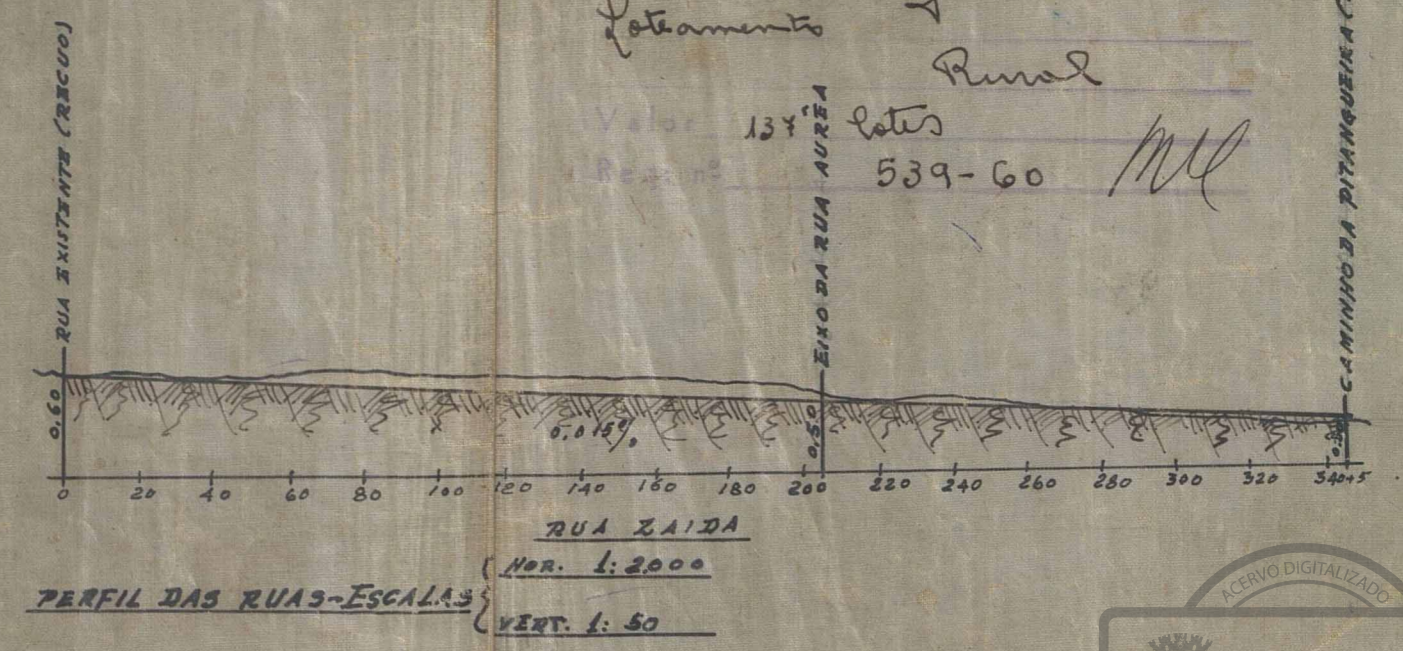 RUA EXISTENTE (RECUO)
Loteamento
Rural
Valor
137 lotes
539-60
EIXO DA RUA AUREA
CAMINHO DA PITANGUEIRA
0,60
0,015%
0,50
0 20 40 60 80 100 120 140 160 180 200 220 240 260 280 300 320 340+5
RUA ZAIDA
PERFIL DAS RUAS-ESCALAS
HOR. 1:2.000
VERT. 1:50
ACERVO DIGITALIZADO